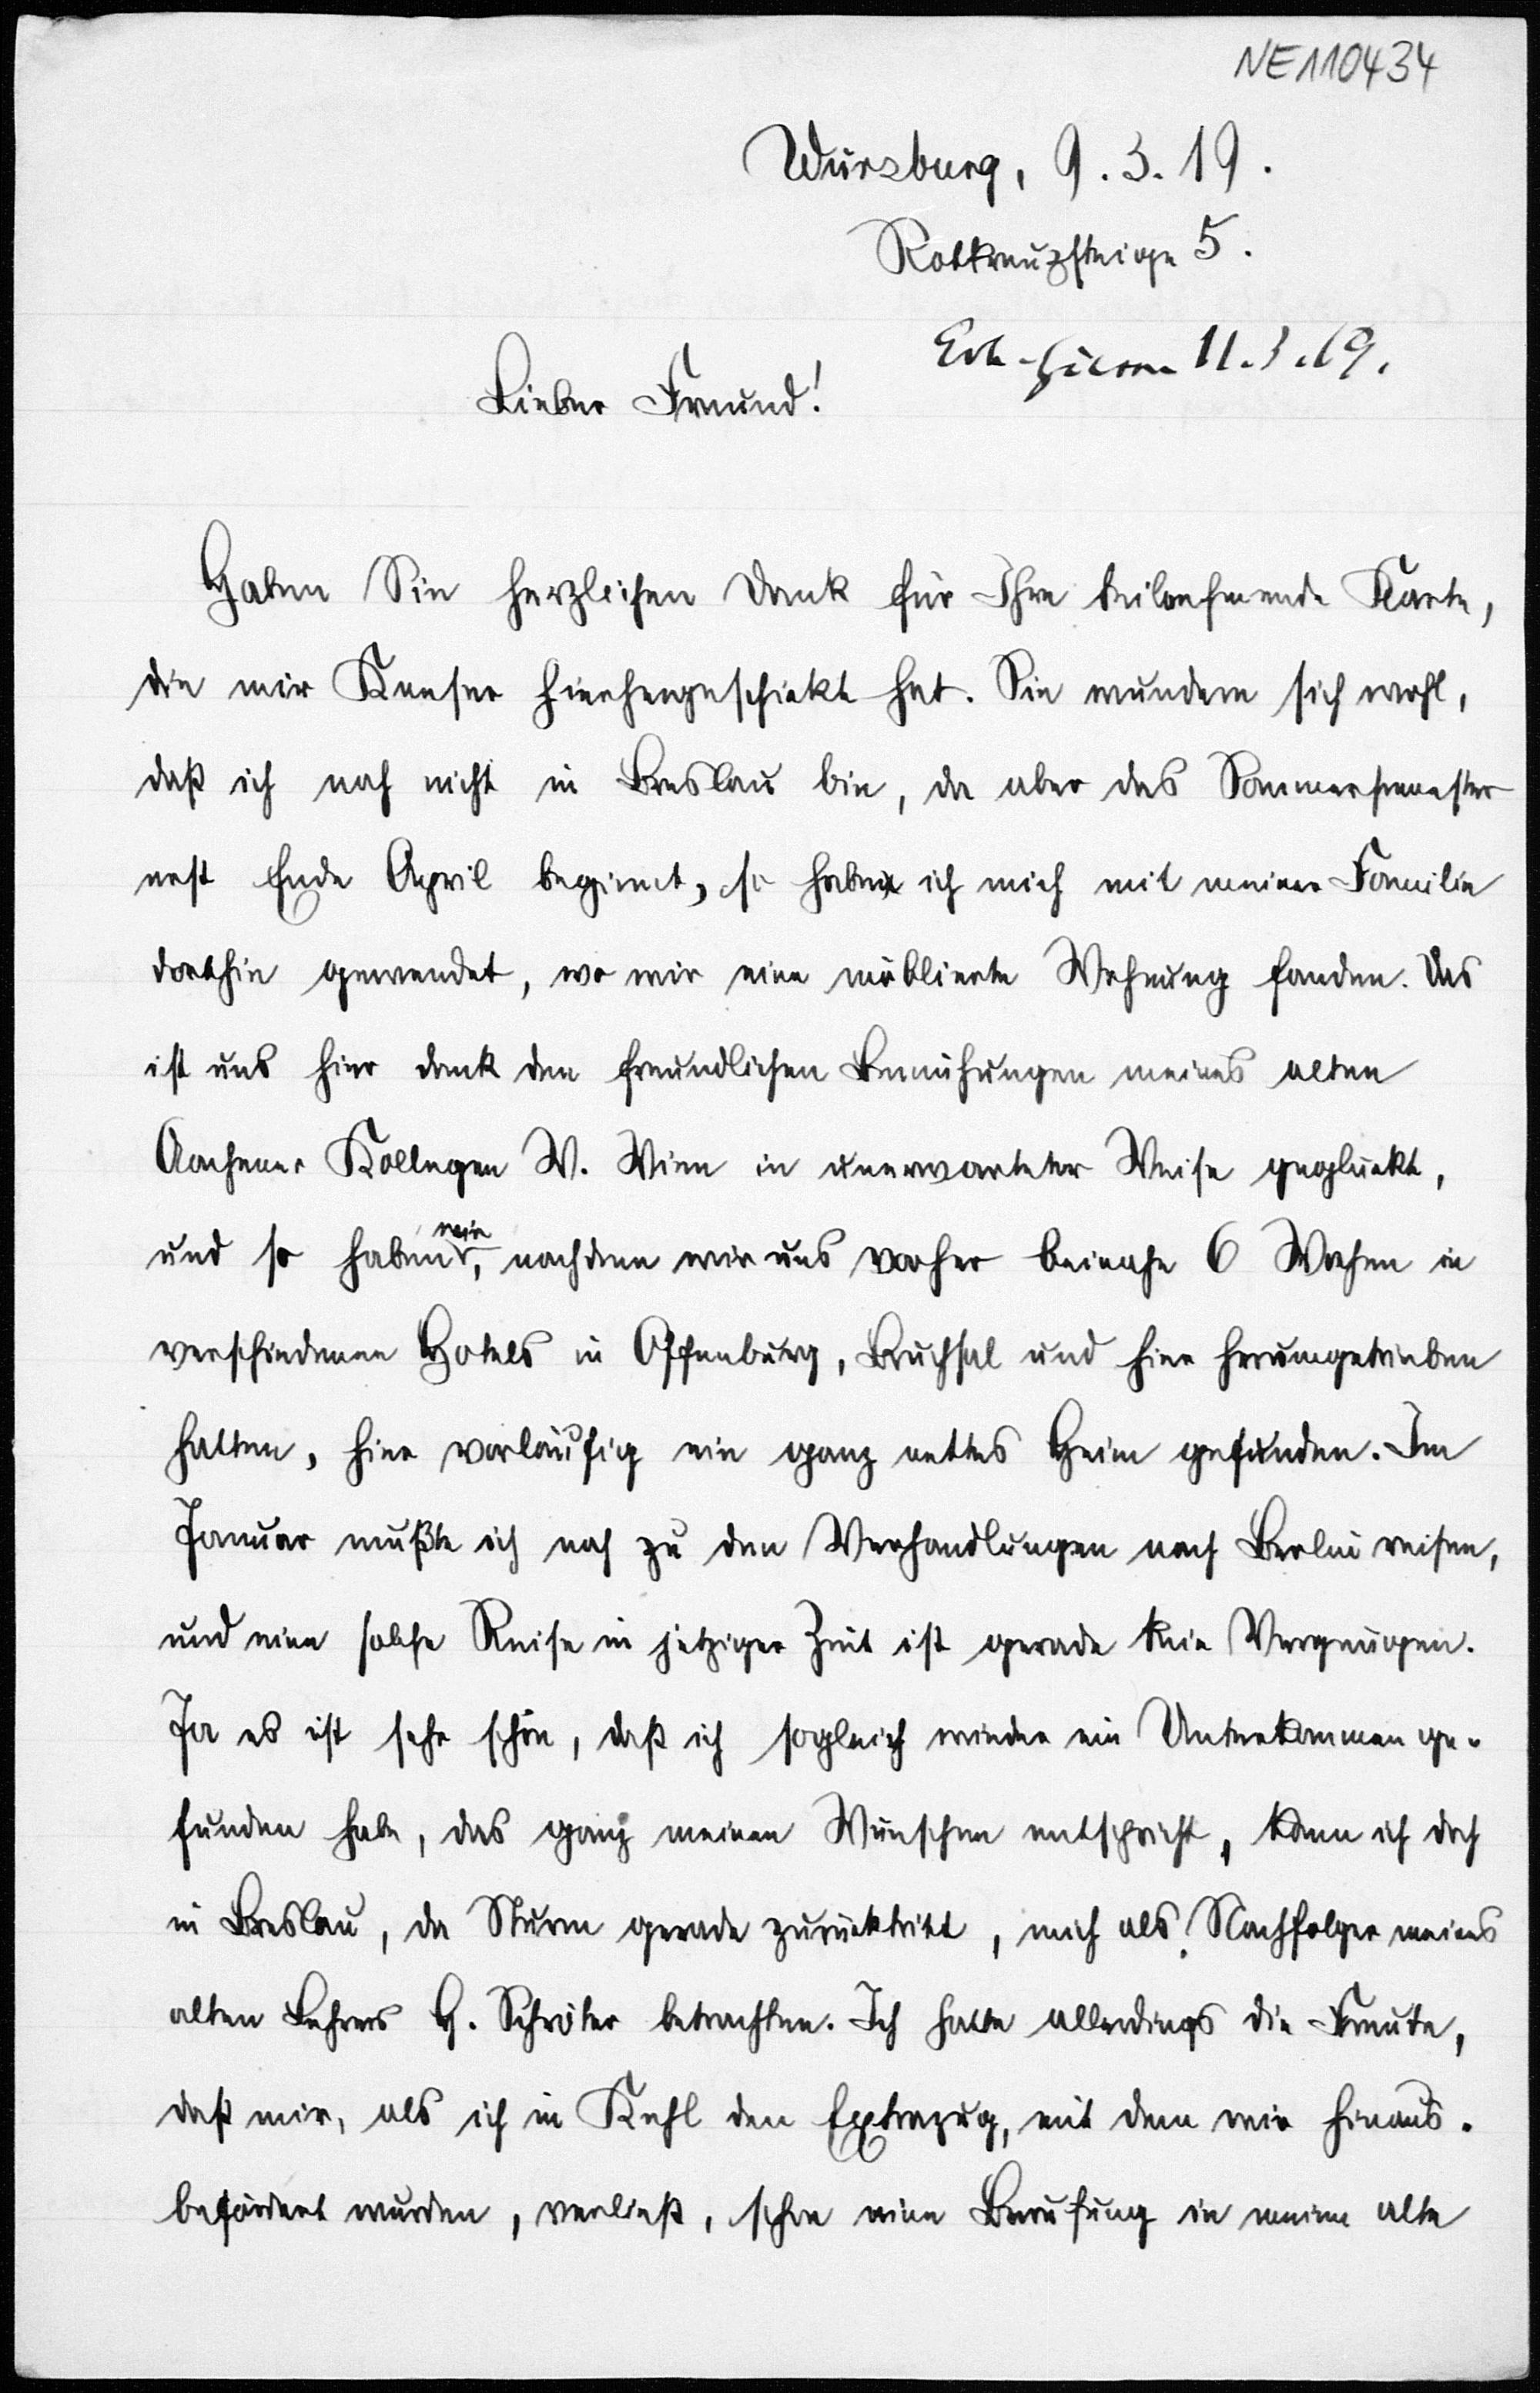 NE110434
Würzburg, 9.3.19.
Rotkreuzsteige 5.
11.3.19.
Lieber Freund!
Haben Sie herzlichen Dank für Ihre teilnehmende Karte,
die mir Kayser hierhergeschickt hat. Sie wundern sich wohl,
daß ich noch nicht in Breslau bin, da aber das Sommersemester
erst Ende April beginnt, so habe ich mich mit meiner Familie
dorthin gewendet, wo wir eine möblierte Wohnung fanden. Das
ist uns hier dank den freundlichen Bemühungen meines alten
Aachener Kollegen W. Wien in unerwarteter Weise geglückt,
und so haben wir, nachdem wir uns vorher beinahe 6 Wochen in
verschiedenen Hotels in Offenburg, Bruchsal und hier herumgetrieben
hatten, hier vorläufig ein ganz nettes Heim gefunden. Im
Januar mußte ich noch zu den Verhandlungen nach Berlin reisen,
und eine solche Reise in jetziger Zeit ist gerade kein Vergnügen.
Ja es ist sehr schön, daß ich sogleich wieder ein Unterkommen ge-
funden habe, das ganz meinen Wünschen entspricht, kann ich doch
in Breslau, da Sturm gerade zurücktritt, mich als Nachfolger meines
alten Lehrers H. Schröter betrachten. Ich hatte allerdings die Freude,
daß mir, als ich in Kehl den Extrazug, mit dem wir hinaus-
befördert wurden, verließ, schon eine Berufung in meine alte